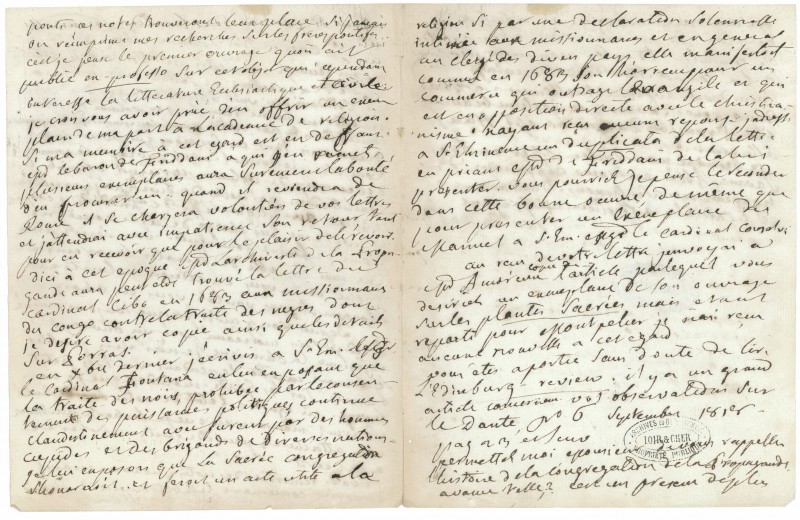 ponts ou notes trouveront leur place. Si jamais
on réimprime mes recherches sur les frères pontifes
c'est je pense le premier ouvrage qu'on ait
publié ex-professo sur cet objet qui cependant
interesse la litterature Ecclesiastique et civile
je crois vous avoir prié d'en offrir un exem
plaire de ma part à l'academie de religion.
Si ma memoire à cet egard est en defaut
le baron de a qui j'en remet
plusieurs exemplaires aura surement la bonté
d'en procurer un. quand il reviendra de
Rome il se chargera volontiers de vos lettres
et j'attendrai avec impatience son retour tant
pour en recevoir que pour le plaisir de le revoir.
d'ici à cet epoque l'archiviste de la Propa
gande aura peut etre trouvé la lettre du
cardinal Cibo en 1683 aux missionnaires
du congo contre la traite des negres dont
je desire avoir copie ainsi que les details
sur
en Xbre dernier j'écrivis a S. Em. Mgr
le Cardinal Fontana en lui exposant que
la traite des noirs, prohibée par le consen
tement des puissances politiques continue
clandestinement avec fureur par des hommes
cupides et des brigands de diverses nations
je lui exposois que la Sacrée congregation
s'honoreroit et feroit un acte utile a la
religion si par une declaration solennelle
intimée aux missionnaires et en general
au clergé de divers pays elle manifestoit
comme en 1683 son horreur pour un
commerce qui outrage l'Evangile et qui
est en opposition directe avec le christia-
nisme. n'ayant reçu aucune reponse j'adresse
a S. Eminence un duplicata de la lettre
en priant de la lui
presenter. vous pourriez je pense le seconder
dans cette bonne oeuvre de même que
pour presenter un Exemplaire du
manuel a S. Em. Mgr le cardinal Consalvi
au reçu de votre lettre j'envoyai a
copie de l'article par lequel vous
desiriez un exemplaire de son ouvrage
sur les plantes Sacrées mais etant
reparti pour Montpelier je n'ai reçu
aucune nouvelle a cet egard
vous etes a portée sans doute de lire
l'Edinburg review: il y a un grand
article concernant vos observations sur
le Dante, No 6 Septembre 1818
pag et suiv
permettez moi de vous rappeller
l'histoire de la congregation de la Propagande
avance-t-elle? c'est un present de plus
ARCHIVES
PROPRIÉTÉ PUBLIQUE
LOIR & CHER